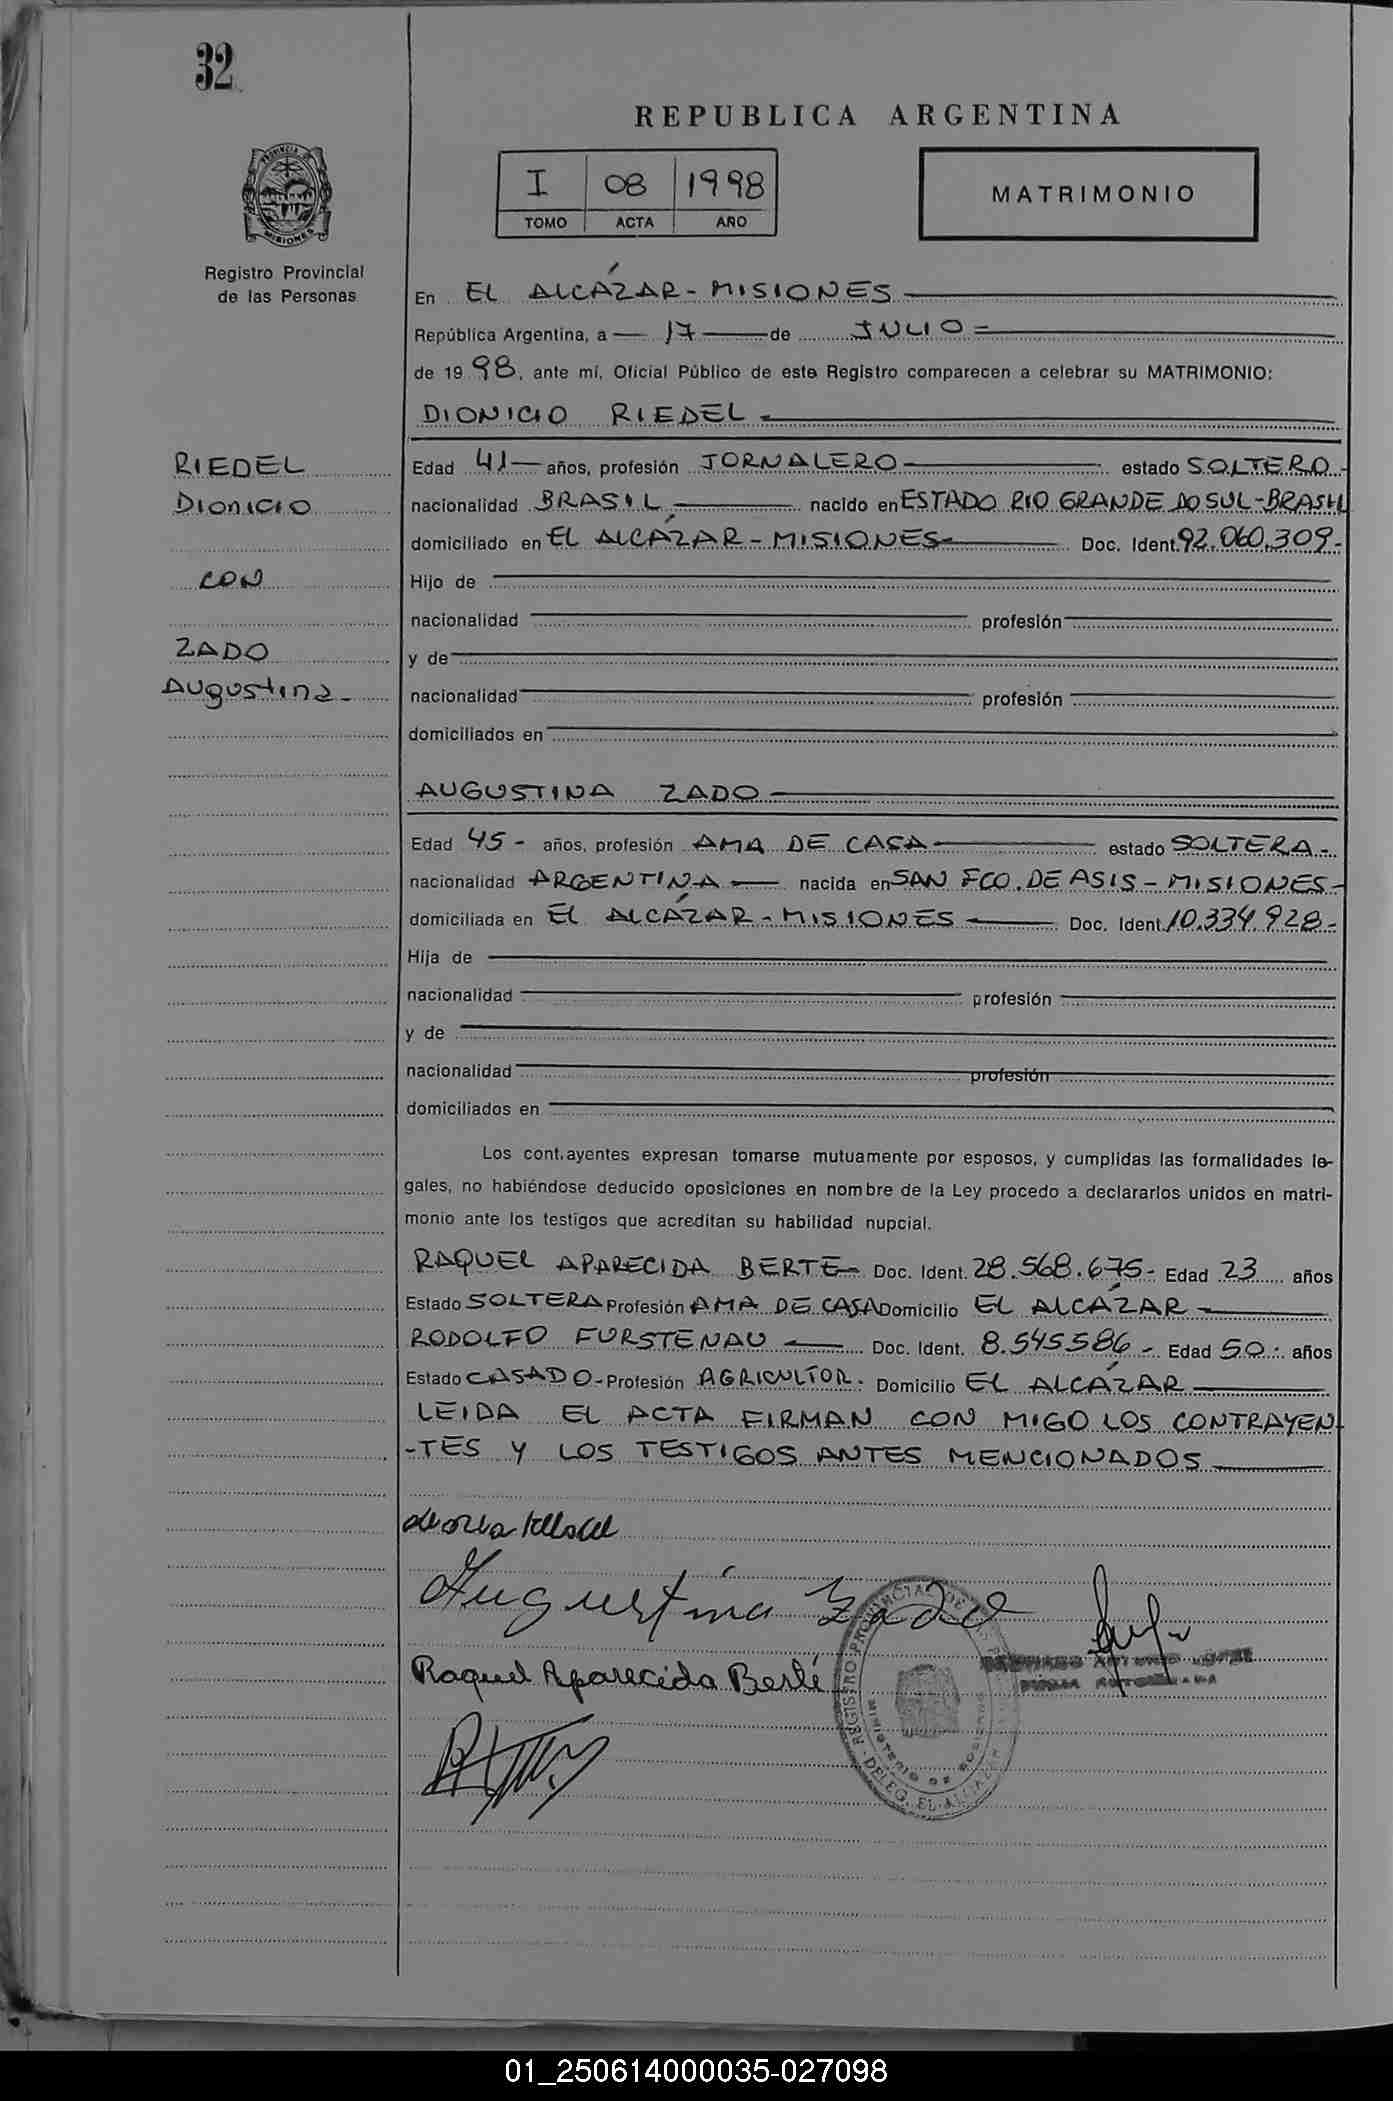 32
REPUBLICA ARGENTINA
I 08 1998
TOMO ACTA AÑO
MATRIMONIO
PROVINCIA DE MISIONES
Registro Provincial
de las Personas
En EL ALCÁZAR - MISIONES
República Argentina, a 17 de JULIO
de 1998, ante mí, Oficial Público de este Registro comparecen a celebrar su MATRIMONIO:
DIONICIO RIEDEL
RIEDEL
DIONICIO
CON
ZADO
Augustina
Edad 41 años, profesión JORNALERO estado SOLTERO
nacionalidad BRASIL nacido en ESTADO RIO GRANDE DO SUL - BRASIL
domiciliado en EL ALCÁZAR - MISIONES Doc. Ident. 92.060.309
Hijo de
nacionalidad profesión
y de
nacionalidad profesión
domiciliados en
AUGUSTINA ZADO
Edad 45 - años, profesión AMA DE CASA estado SOLTERA
nacionalidad ARGENTINA nacida en SAN FCO. DE ASIS - MISIONES
domiciliada en EL ALCÁZAR - MISIONES Doc. Ident. 10.334.928
Hija de
nacionalidad profesión
y de
nacionalidad profesión
domiciliados en
Los cont.ayentes expresan tomarse mutuamente por esposos, y cumplidas las formalidades le-
gales, no habiéndose deducido oposiciones en nombre de la Ley procedo a declararlos unidos en matri-
monio ante los testigos que acreditan su habilidad nupcial.
RAQUEL APARECIDA BERTE Doc. Ident. 28.568.675 - Edad 23 años
Estado SOLTERA Profesión AMA DE CASA Domicilio EL ALCÁZAR
RODOLFO FURSTENAU Doc. Ident. 8.545586 - Edad 50 años
Estado CASADO - Profesión AGRICULTOR. Domicilio EL ALCÁZAR
LEIDA EL ACTA FIRMAN CON MIGO LOS CONTRAYEN
-TES Y LOS TESTIGOS ANTES MENCIONADOS
Augustina Zado
Raquel Aparecida Berté
REGISTRO PROVINCIAL DE LAS
MINISTERIO DE
DELEG. EL ALCAZAR
ANTONIO
01_250614000035-027098